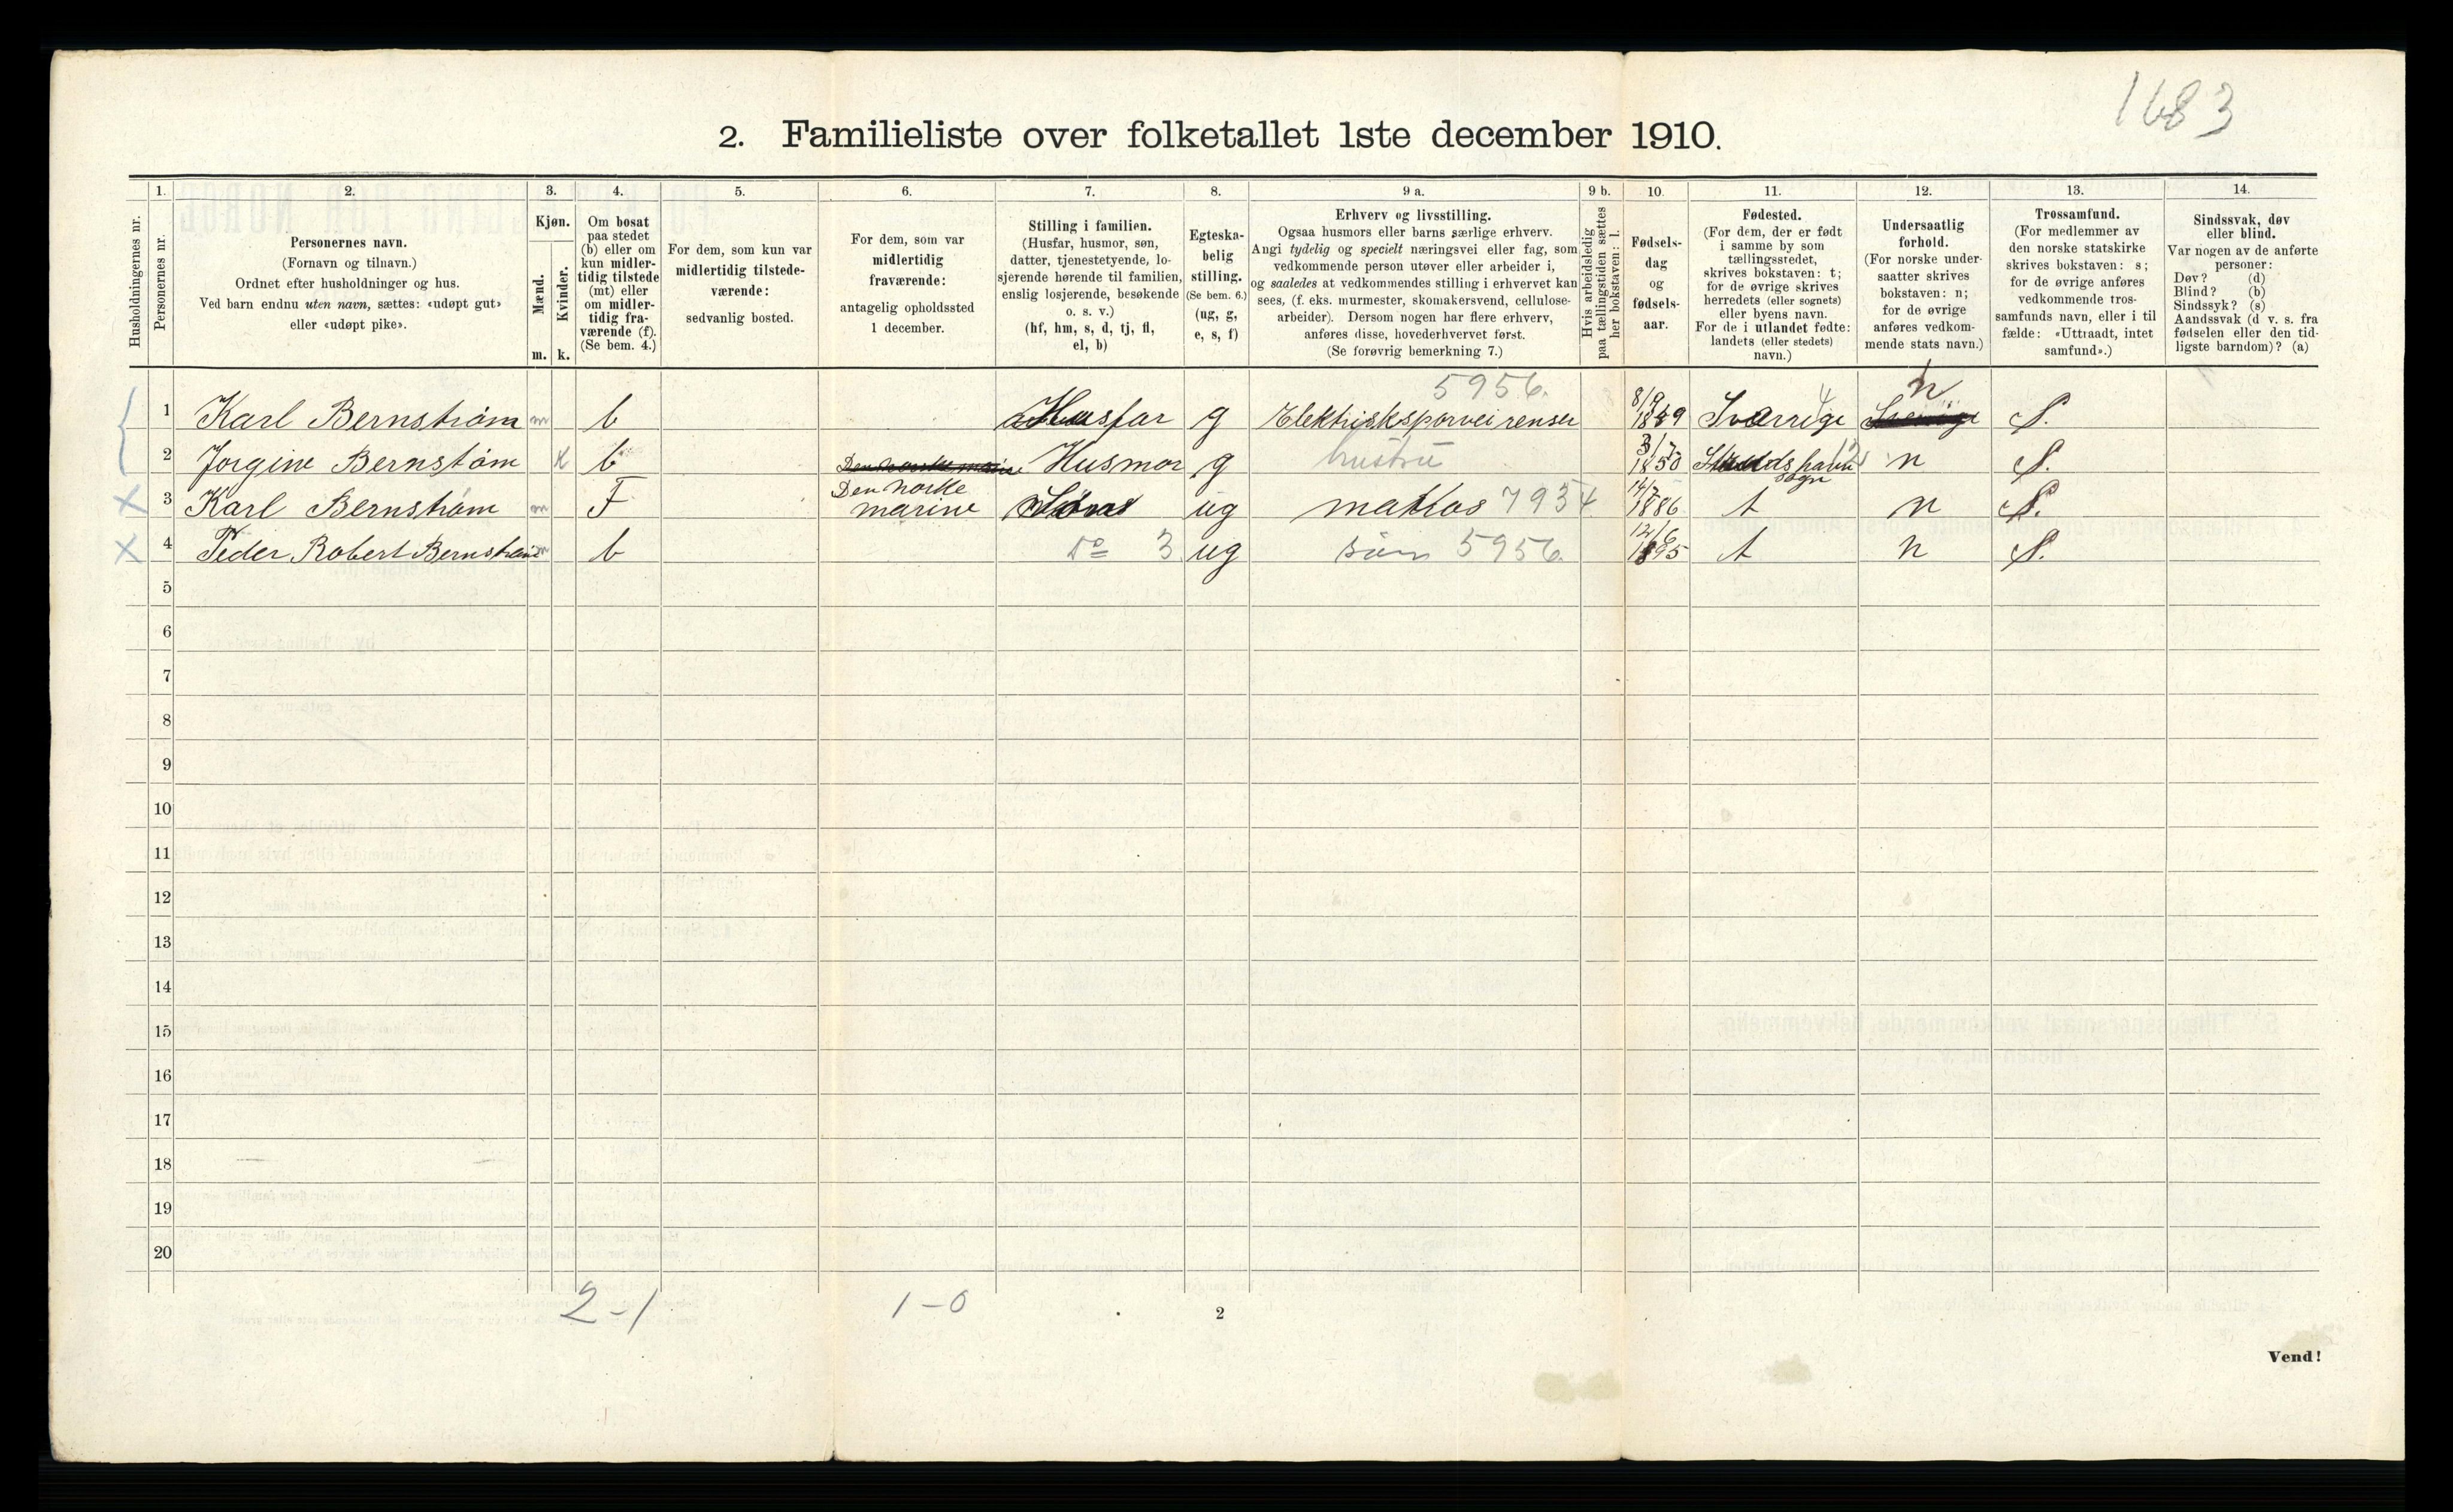 1683
2. Familieliste over folketallet 1ste december 1910.
1. 2. 3. 4. 5. 6. 7. 8. 9 a. 9 b. 10. 11. 12. 13. 14.
Husholdningernes nr.
Personernes nr.
Personernes navn.
(Fornavn og tilnavn.)
Ordnet efter husholdninger og hus.
Ved barn endnu uten navn, sættes: «udøpt gut»
eller «udøpt pike».
Kjøn.
Mænd.
Kvinder.
m. k.
Om bosat
paa stedet
(b) eller om
kun midler-
tidig tilstede
(mt) eller
om midler-
tidig fra-
værende (f).
(Se bem. 4.)
For dem, som kun var
midlertidig tilstede-
værende:
sedvanlig bosted.
For dem, som var
midlertidig
fraværende:
antagelig opholdssted
1 december.
Stilling i familien.
(Husfar, husmor, søn,
datter, tjenestetyende, lo-
sjerende hørende til familien,
enslig losjerende, besøkende
o. s. v.)
(hf, hm, s, d, tj, fl,
el, b)
Egteska-
belig
stilling.
(Se bem. 6.)
(ug, g,
e, s, f)
Erhverv og livsstilling.
Ogsaa husmors eller barns særlige erhverv.
Angi tydelig og specielt næringsvei eller fag, som
vedkommende person utøver eller arbeider i,
og saaledes at vedkommendes stilling i erhvervet kan
sees, (f. eks. murmester, skomakersvend, cellulose-
arbeider). Dersom nogen har flere erhverv,
anføres disse, hovederhvervet først.
(Se forøvrig bemerkning 7.)
Hvis arbeidsledig
paa tællingstiden sættes
her bokstaven: l.
Fødsels-
dag
og
fødsels-
aar.
Fødested.
(For dem, der er født
i samme by som
tællingsstedet,
skrives bokstaven: t;
for de øvrige skrives
herredets (eller sognets)
eller byens navn.
For de i utlandet fødte:
landets (eller stedets)
navn.)
Undersaatlig
forhold.
(For norske under-
saatter skrives
bokstaven: n;
for de øvrige
anføres vedkom-
mende stats navn.)
Trossamfund.
(For medlemmer av
den norske statskirke
skrives bokstaven: s;
for de øvrige anføres
vedkommende tros-
samfunds navn, eller i til
fælde: «Uttraadt, intet
samfund».)
Sindssvak, døv
eller blind.
Var nogen av de anførte
personer:
Døv? (d)
Blind? (b)
Sindssyk? (s)
Aandssvak (d v. s. fra
fødselen eller den tid-
ligste barndom)? (a)
5956.
1 Karl Bernstrøm m b Husfar g Elektrisksporvei renser 8/9 Sverrige n S.
2 Jorgine Bernstøm k b Husmor g hustru 1850 n S.
3 Karl Bernstrøm m F Den norske marine Søn ug matros 7934 14/7 1886 t n S.
4 Peder Robert Bernstrøm m b do 3 ug søn 5956. 12/6 1895 t n S.
5
6
7
8
9
10
11
12
13
14
15
16
17
18
19
20
2-1 1-0
2
Vend!